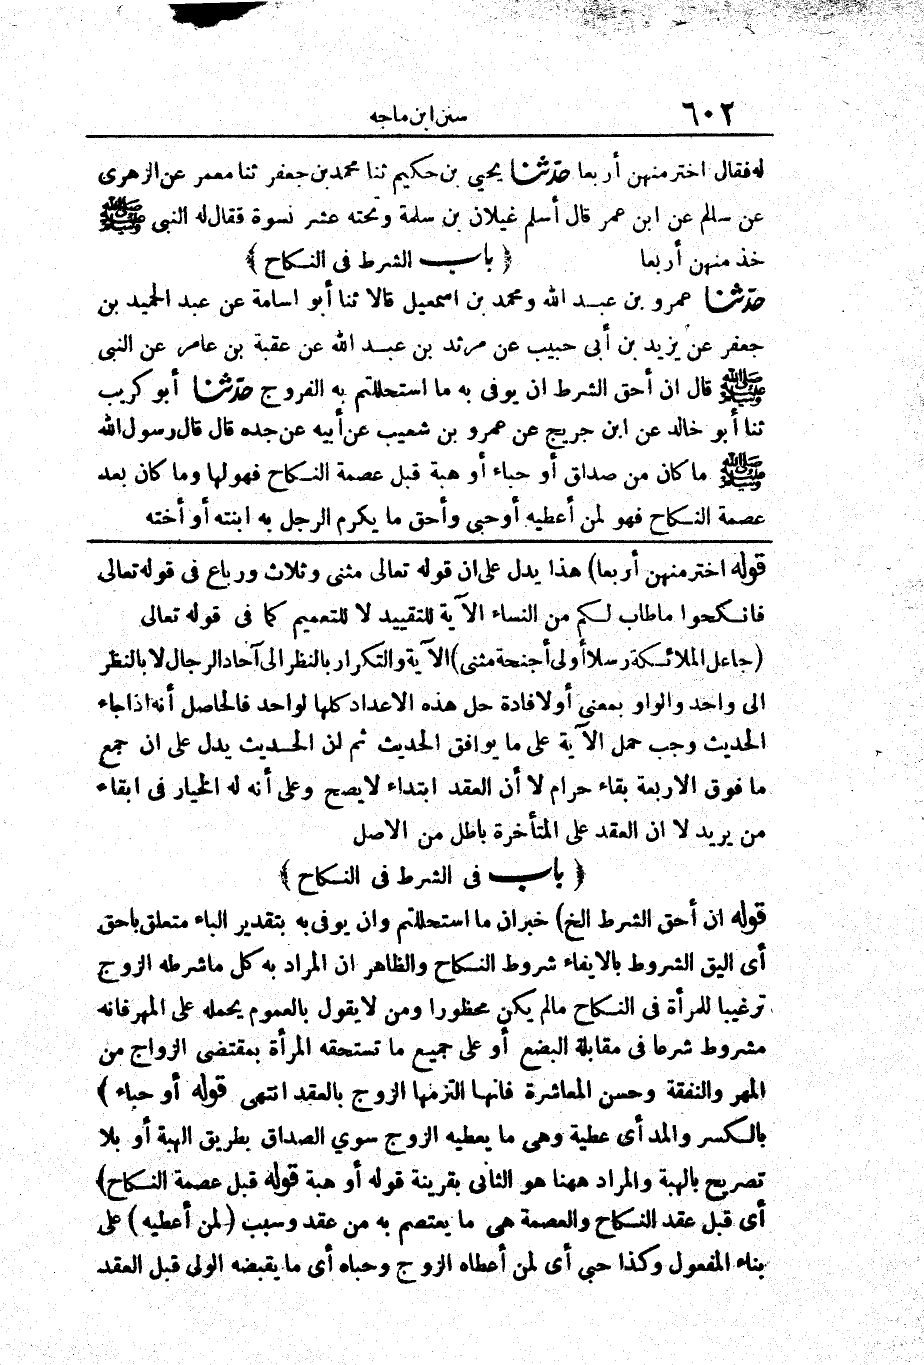 ٦٠٢
سنن ابن ماجه
له فقال اختر منهن أربعا حدّثنا يحيي بن حكيم ثنا محمد بن جعفر ثنا معمر عن الزهرى
عن سالم عن ابن عمر قال أسلم غيلان بن سلمة وتحته عشر نسوة فقال له النبى ﷺ
خذ منهن أربعا ﴿ باب الشرط فى النكاح ﴾
حدّثنا عمرو بن عبد الله ومحمد بن اسمعيل قالا ثنا أبو اسامة عن عبد الحميد بن
جعفر عن يزيد بن أبى حبيب عن مرثد بن عبد الله عن عقبة بن عامر عن النبى
ﷺ قال ان أحق الشرط ان يوفى به ما استحللتم به الفروج حدّثنا أبو كريب
ثنا أبو خالد عن ابن جريج عن عمرو بن شعيب عن أبيه عن جده قال قال رسول الله
ﷺ ما كان من صداق أو حباء أو هبة قبل عصمة النكاح فهو لها وما كان بعد
عصمة النكاح فهو لمن أعطيه أو حبى وأحق ما يكرم الرجل به ابنته أو أخته
قوله اختر منهن أربعا) هذا يدل على ان قوله تعالى مثنى وثلاث ورباع فى قوله تعالى
فانكحوا ماطاب لكم من النساء الآية للتقييد لا للتعميم كما فى قوله تعالى
(جاعل الملائكة رسلا أولى أجنحة مثنى) الآية والتكرار بالنظر الى آحاد الرجال لا بالنظر
الى واحد والواو بمعنى أو لافادة حل هذه الاعداد كلها لواحد فالحاصل أنه اذا جاء
الحديث وجب حمل الآية على ما يوافق الحديث ثم لن الحديث يدل على ان جمع
ما فوق الاربعة بقاء حرام لا أن العقد ابتداء لا يصح وعلى أنه له الخيار فى ابقاء
من يريد لا ان العقد على المتأخرة باطل من الاصل
﴿ باب فى الشرط فى النكاح ﴾
قوله ان أحق الشرط الخ) خبر ان ما استحللتم وان يوفى به بتقدير الباء متعلق باحق
أى اليق الشروط بالايفاء شروط النكاح والظاهر ان المراد به كل ماشرطه الزوج
ترغيبا للمرأة فى النكاح مالم يكن محظورا ومن لا يقول بالعموم يحمله على المهر فانه
مشروط شرعا فى مقابلة البضع أو على جميع ما تستحقه المرأة بمقتضى الزواج من
المهر والنفقة وحسن المعاشرة فانها التزمها الزوج بالعقد انتهى قوله أو حباء )
بالكسر والمد أى عطية وهى ما يعطيه الزوج سوي الصداق بطريق الهبة أو بلا
تصريح بالهبة والمراد ههنا هو الثانى بقرينة قوله أو هبة قوله قبل عصمة النكاح)
أى قبل عقد النكاح والعصمة هى ما يعتصم به من عقد وسبب (لمن أعطيه) على
بناء المفعول وكذا حبى أى لمن أعطاه الزوج وحباه أى ما يقبضه الولى قبل العقد